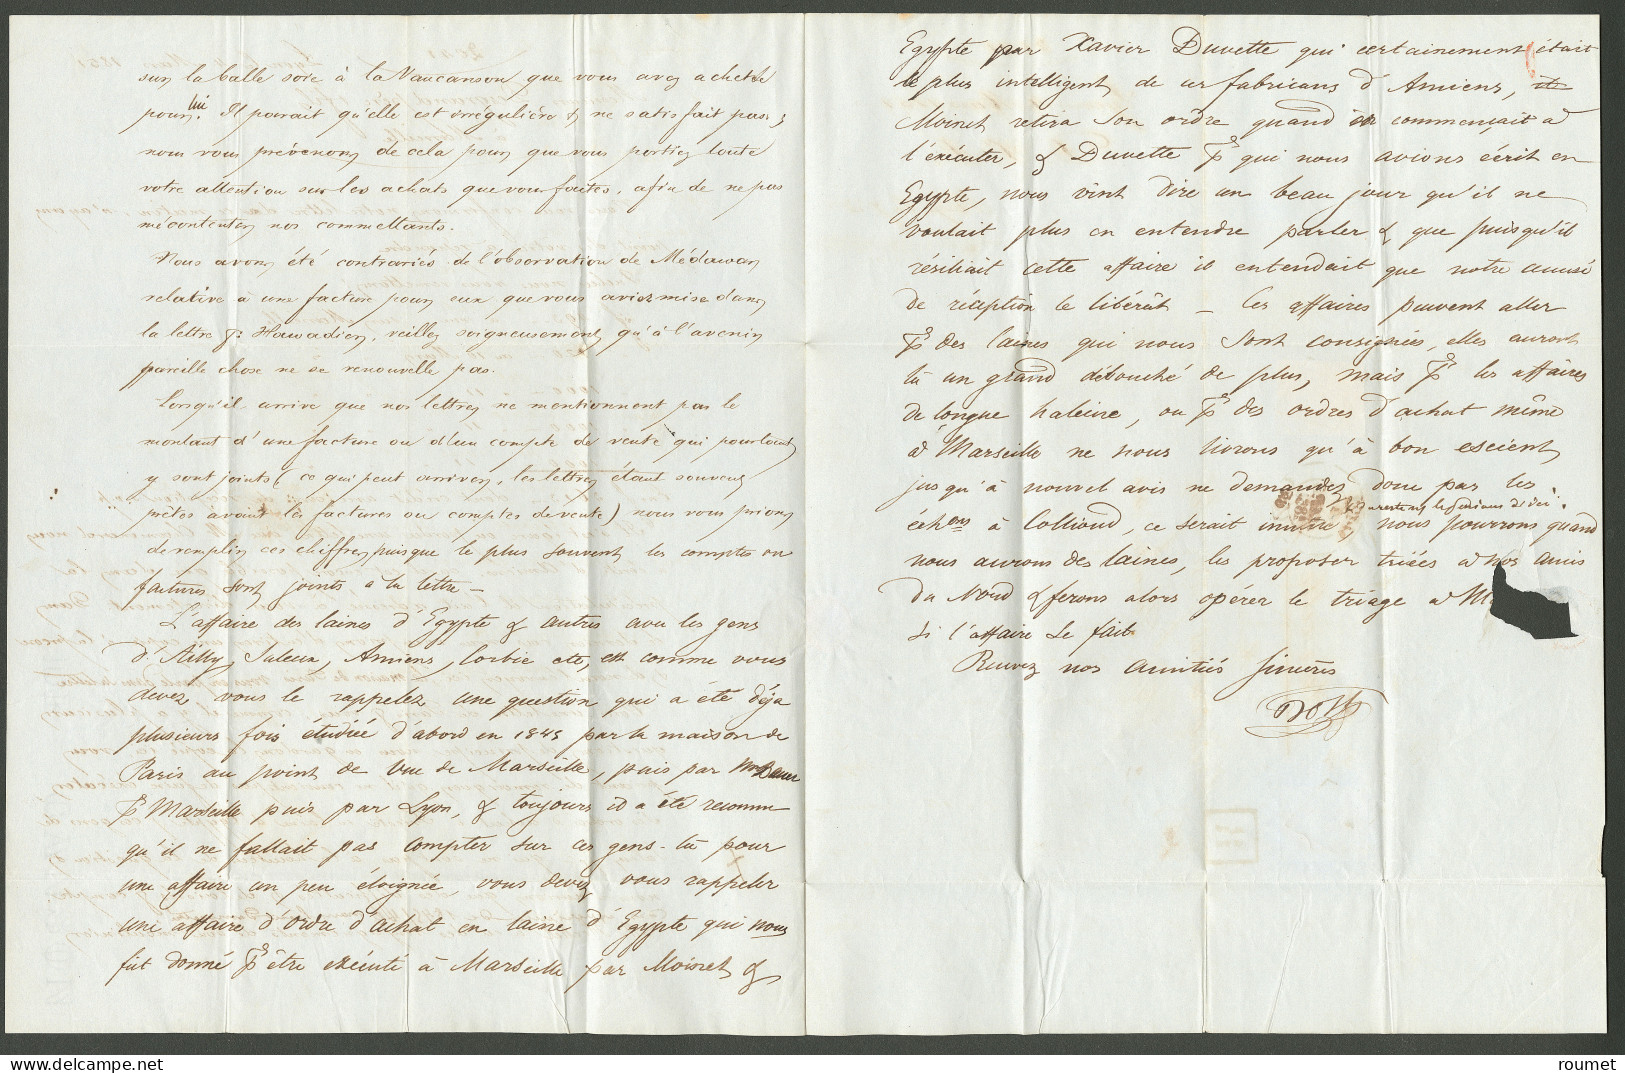 sur la balle soie à la Vaucanson que vous avez achetée
pour lui. Il parait qu'elle est irrégulière & ne satisfait pas,
nous vous prévenons de cela pour que vous portiez toute
votre attention sur les achats que vous faites, afin de ne pas
mécontenter nos commettants.
Nous avons été contrariés de l'observation de Médawar
relative à une facture pour eux que vous aviez mise dans
la lettre pr. Hawadier, veillez soigneusement qu'à l'avenir
pareille chose ne se renouvelle pas.
Lorsqu'il arrive que nos lettres ne mentionnent pas le
montant d'une facture ou d'un compte de vente qui pourtant
y sont joints (ce qui peut arriver, les lettres étant souvent
prêtes avant les factures ou comptes de vente) nous vous prions
de remplir ces chiffres puisque le plus souvent les comptes ou
factures sont joints à la lettre —
L'affaire des laines d'Egypte & autres avec les gens
d'Ailly, Saleux, Amiens, Corbie etc, est comme vous
devez vous le rappeler une question qui a été déja
plusieurs fois étudiée d'abord en 1845 par la maison de
Paris au point de vue de Marseille, puis par
pr Marseille puis par Lyon, & toujours il a été reconnu
qu'il ne fallait pas compter sur ces gens-là pour
une affaire un peu éloignée, vous devez vous rappeler
une affaire d'ordre d'achat en laine d'Egypte qui nous
fut donné pr être exécuté à Marseille par Moinet &
Egypte par Xavier Duvette qui certainement était
le plus intelligent de ces fabricans d'Amiens,
Moinet retira son ordre quand on commençait à
l'exécuter, & Duvette pr qui nous avions écrit en
Egypte, nous vint dire un beau jour qu'il ne
voulait plus en entendre parler & que puisqu'il
résiliait cette affaire il entendait que notre accusé
de réception le libérât — Ces affaires peuvent aller
pr des laines qui nous sont consignées, elles auront
là un grand débouché de plus, mais pr les affaires
de longue haleine, ou pr des ordres d'achat même
à Marseille ne nous livrons qu'à bon escient
jusqu'à nouvel avis ne demandez donc pas les
échons à Colliond, ce serait inutile, nous pourrons quand
nous aurons des laines, les proposer triées à nos amis
du Nord & ferons alors opérer le triage à M
si l'affaire se fait.
Recevez nos amitiés sincères
roumet